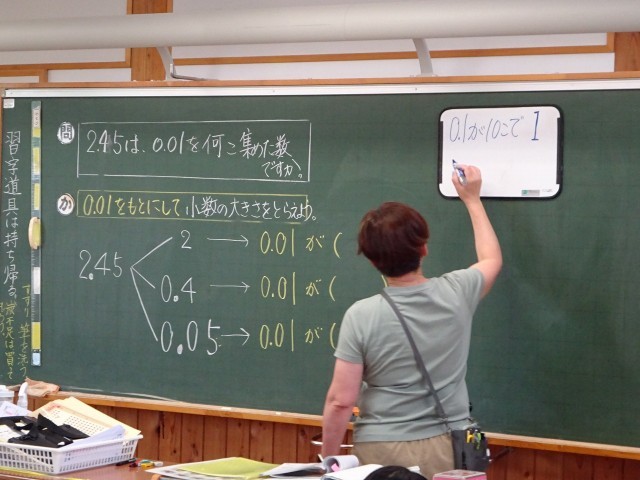 問
2.45は、0.01を何こ集めた数
ですか。
か
0.01をもとにして、小数の大きさをとらえよう。
2.45
2 → 0.01が(
0.4 → 0.01が(
0.05 → 0.01が(
0.1が10こで 1
習字道具は持ち帰る